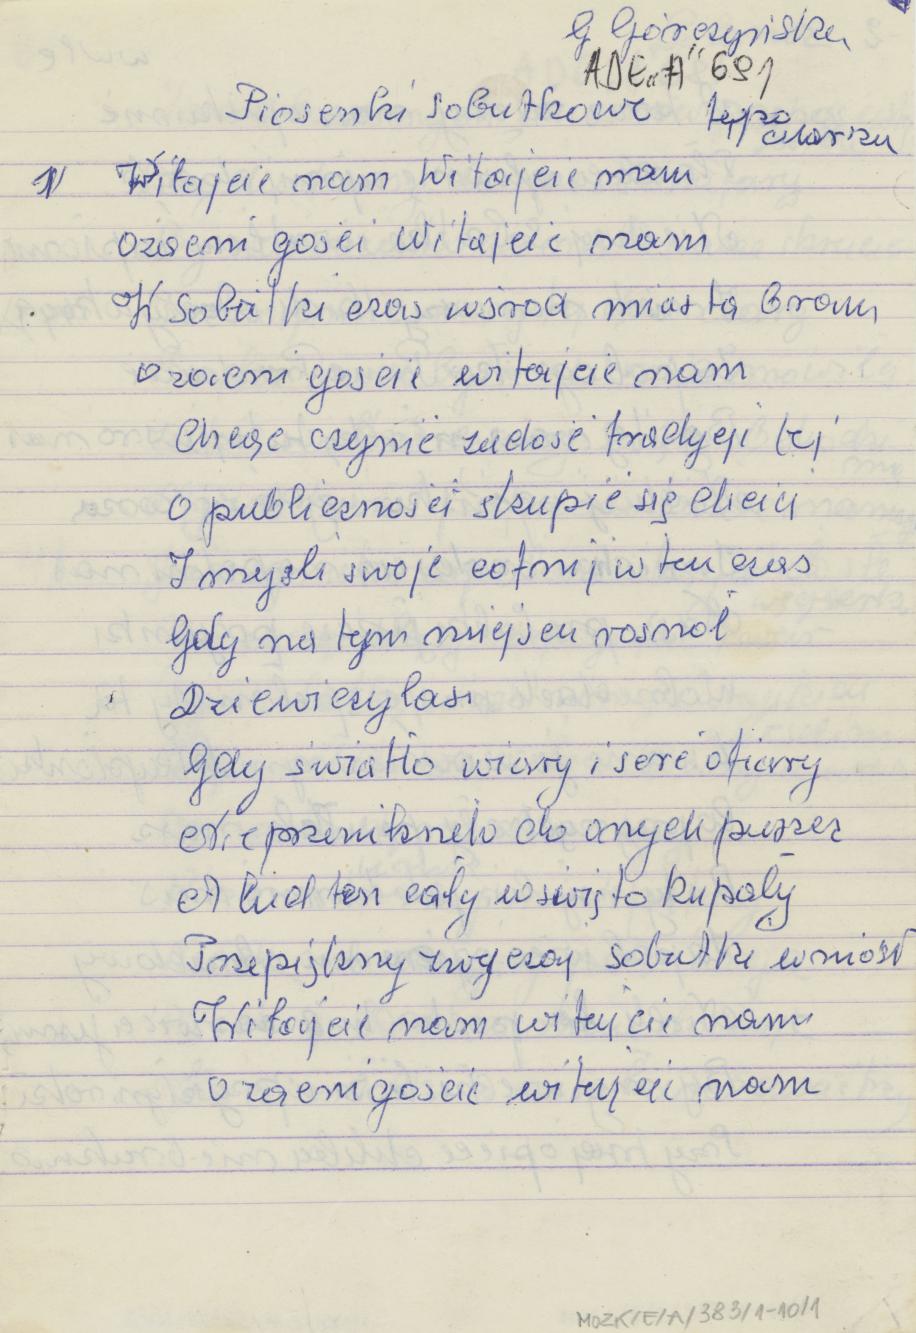 G Górczyńska
ADE „A" 691
Piosenki sobutkowe
1) Witajcie nam Witajcie nam
O zacni gości Witajcie nam
W Sobutki czas wśrod miasta bram
O zacni goście witajcie nam
Chcąc czynić zadość tradycji tej
O publiczności skupić się chciej
I myśli swoje cofnij w ten czas
Gdy na tym miejscu rosnoł
Dziewiczy las
Gdy światło wiary i serc ofiary
Nie przeniknęło do onych puszcz
A lud ten cały w święto kupały
Przepiękny zwyczaj sobutki wniósł
Witajcie nam witajcie nam
O zacni goście witajcie nam
MOZK/E/A/383/1-10/1